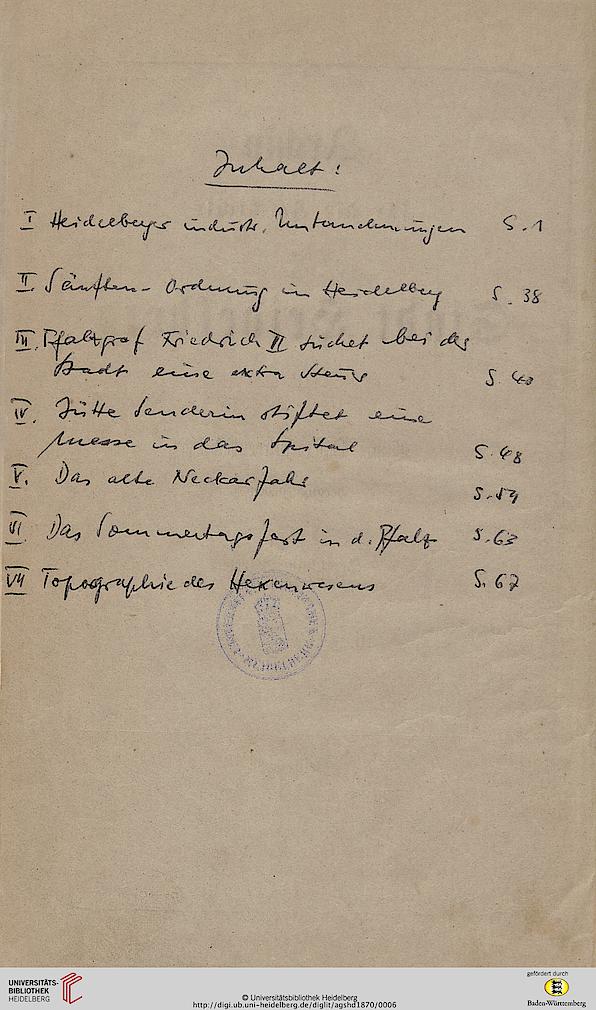 Inhalt:
I Heidelberger industr. Unternehmungen S. 1
II. Sänften-Ordnung in Heidelberg S. 38
III. Pfalzgraf Friedrich II suchet bei der
Stadt eine extra Steuer S. 40
IV. Jütte Senderin stiftet eine
Messe in das Spital S. 48
V. Das alte Neckarfahr S. 54
VI Das Sommertagsfest in d. Pfalz S. 63
VII Topographie des Hexenwesens S. 67
UNIVERSITÄTS-
BIBLIOTHEK
HEIDELBERG
© Universitätsbibliothek Heidelberg
http://digi.ub.uni-heidelberg.de/diglit/agshd1870/0006
gefördert durch
Baden-Württemberg